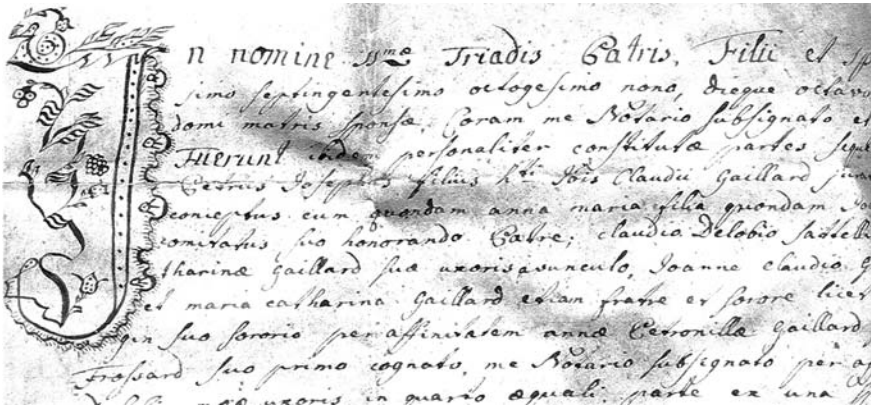 In nomine SSmæ Triadis Patris, Filii et Sp
simo septingentesimo octogesimo nono, dieque octavo
domi matris sponsæ, Coram me Notario subsignato et
Fuerunt ibidem personaliter constitutæ partes seque
Petrus Josephus filius hti Jois Claudii Gaillard jura
conceptus cum quondam anna maria filia quondam
comitatus suo honorando Patre; claudio Delobio
tharinæ Gaillard suæ uxoris avunculo, Joanne claudio G
et maria catharina Gaillard etiam fratre et sorore licet
gin suo sororio per affinitatem annæ Petronillæ Gaillard
Frossard suo primo cognato, me Notario subsignato per af
uxoris in quarto æquali parte ex una